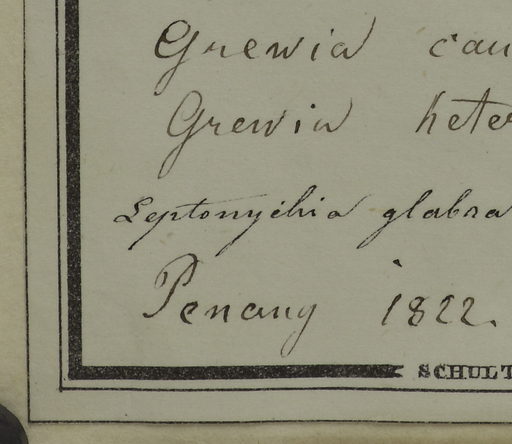 Grewia cau
Grewia heter
Leptonychia glabra
Penang 1822.
SCHULT